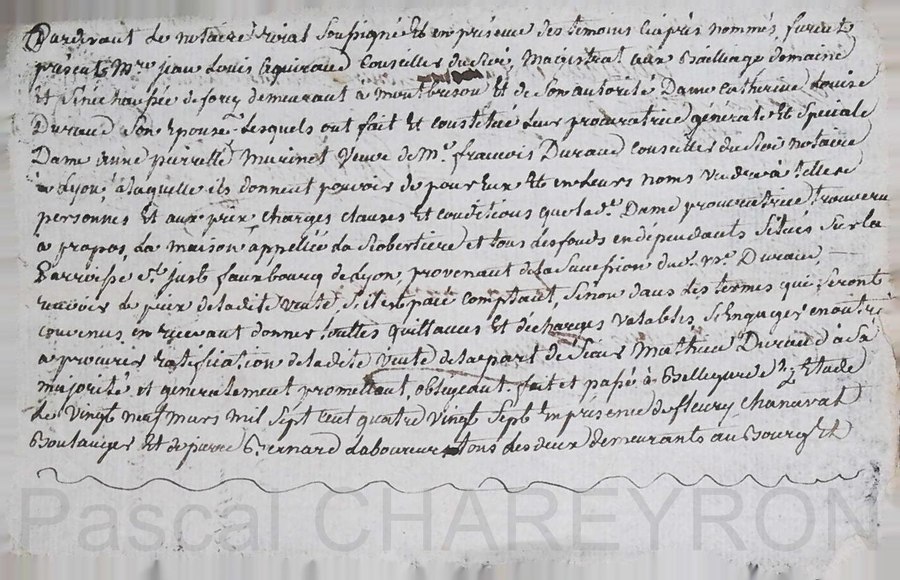 Pardevant Le notaire roial soussigné Et en présence des temoins ciaprès nommés, furent
présents Mre jean Louis Conseiller du Roi, Magistrat aux Bailliage domaine
Et Sénéchaussée de forez demeurant a montbrison Et de Son autorité Dame Catherine Louise
Durand Son Epouse Lesquels ont fait Et constitué Leur procuratrice générale Et Spéciale
Dame anne pierrette Murinet Veuve de Me francois Durand Conseiller du Roi notaire
a Lyon, à laquelle ils donnent pouvoir de pour Eux Et en Leurs noms Vendre à telle
personnes Et aux prix, Charges clauses Et conditions que lade. Dame procuratrice trouvera
a propos, La maison appellée La Robertiere et tous les fonds en dépendants Situés Sur la
Parroisse St. just fauxbourg de Lyon, provenant de la Succession du Sr. Durand,
recevoir Le prix de ladite Vente, S'il est paié comptant, Sinon dans les termes qui Seront
convenus, en recevant donner touttes quittances Et décharges Valables, S'Engager en outre
a procurer ratification de ladite Vente de la part de Sieur Mathieu Durand à Sa
majorité, et généralement promettant, obligeant, fait et passé à Bellegarde Etude
Le Vingt neuf mars mil Sept Cent quatre Vingt Sept En présence de fleury Chanavat
Boulanger Et de pierre Bernard Laboureur tous Les deux demeurants au Bourg Et
Pascal CHAREYRON